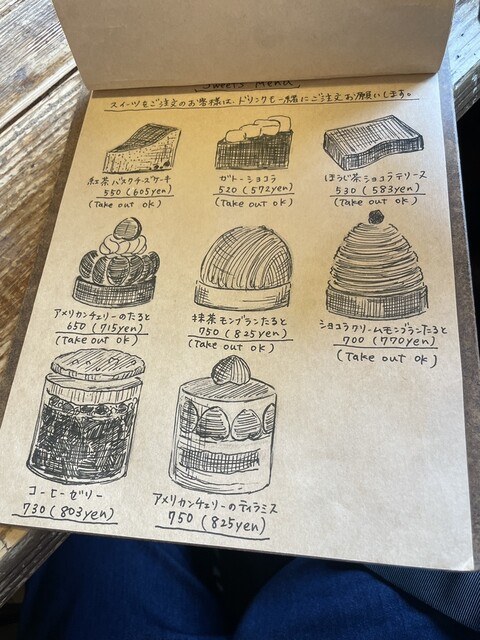 Sweets Menu
スイーツをご注文のお客様は、ドリンクも一緒にご注文お願いします。
紅茶バスクチーズケーキ
550 (605yen)
(Take out OK)
ガトーショコラ
520 (572yen)
(Take out OK)
ほうじ茶ショコラテリーヌ
530 (583yen)
(Take out OK)
アメリカンチェリーのたると
650 (715yen)
(Take out OK)
抹茶モンブランたると
750 (825yen)
(Take out OK)
ショコラクリームモンブランたると
700 (770yen)
(Take out OK)
コーヒーゼリー
730 (803yen)
アメリカンチェリーのティラミス
750 (825yen)